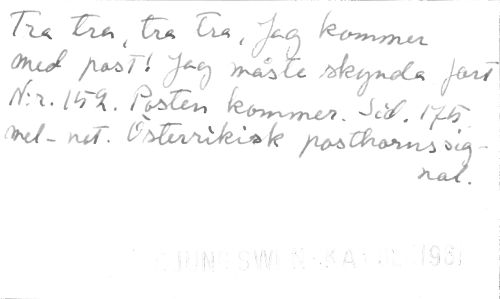 Tra tra, tra tra, Jag kommer
med post! Jag måste skynda fort
N:r. 152. Posten kommer. Sid. 175,
mel-not. Österrikisk posthornssig-
nal.
1931